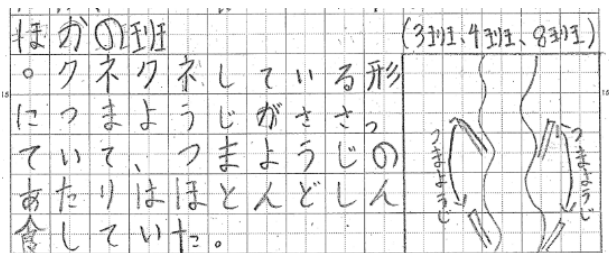 ほかの班
(3班、4班、8班)
。クネクネしている形
につまようじがささっ
ていて、つまようじの
あたりはほとんどしん
食していた。
つまようじ
つまようじ
15
15